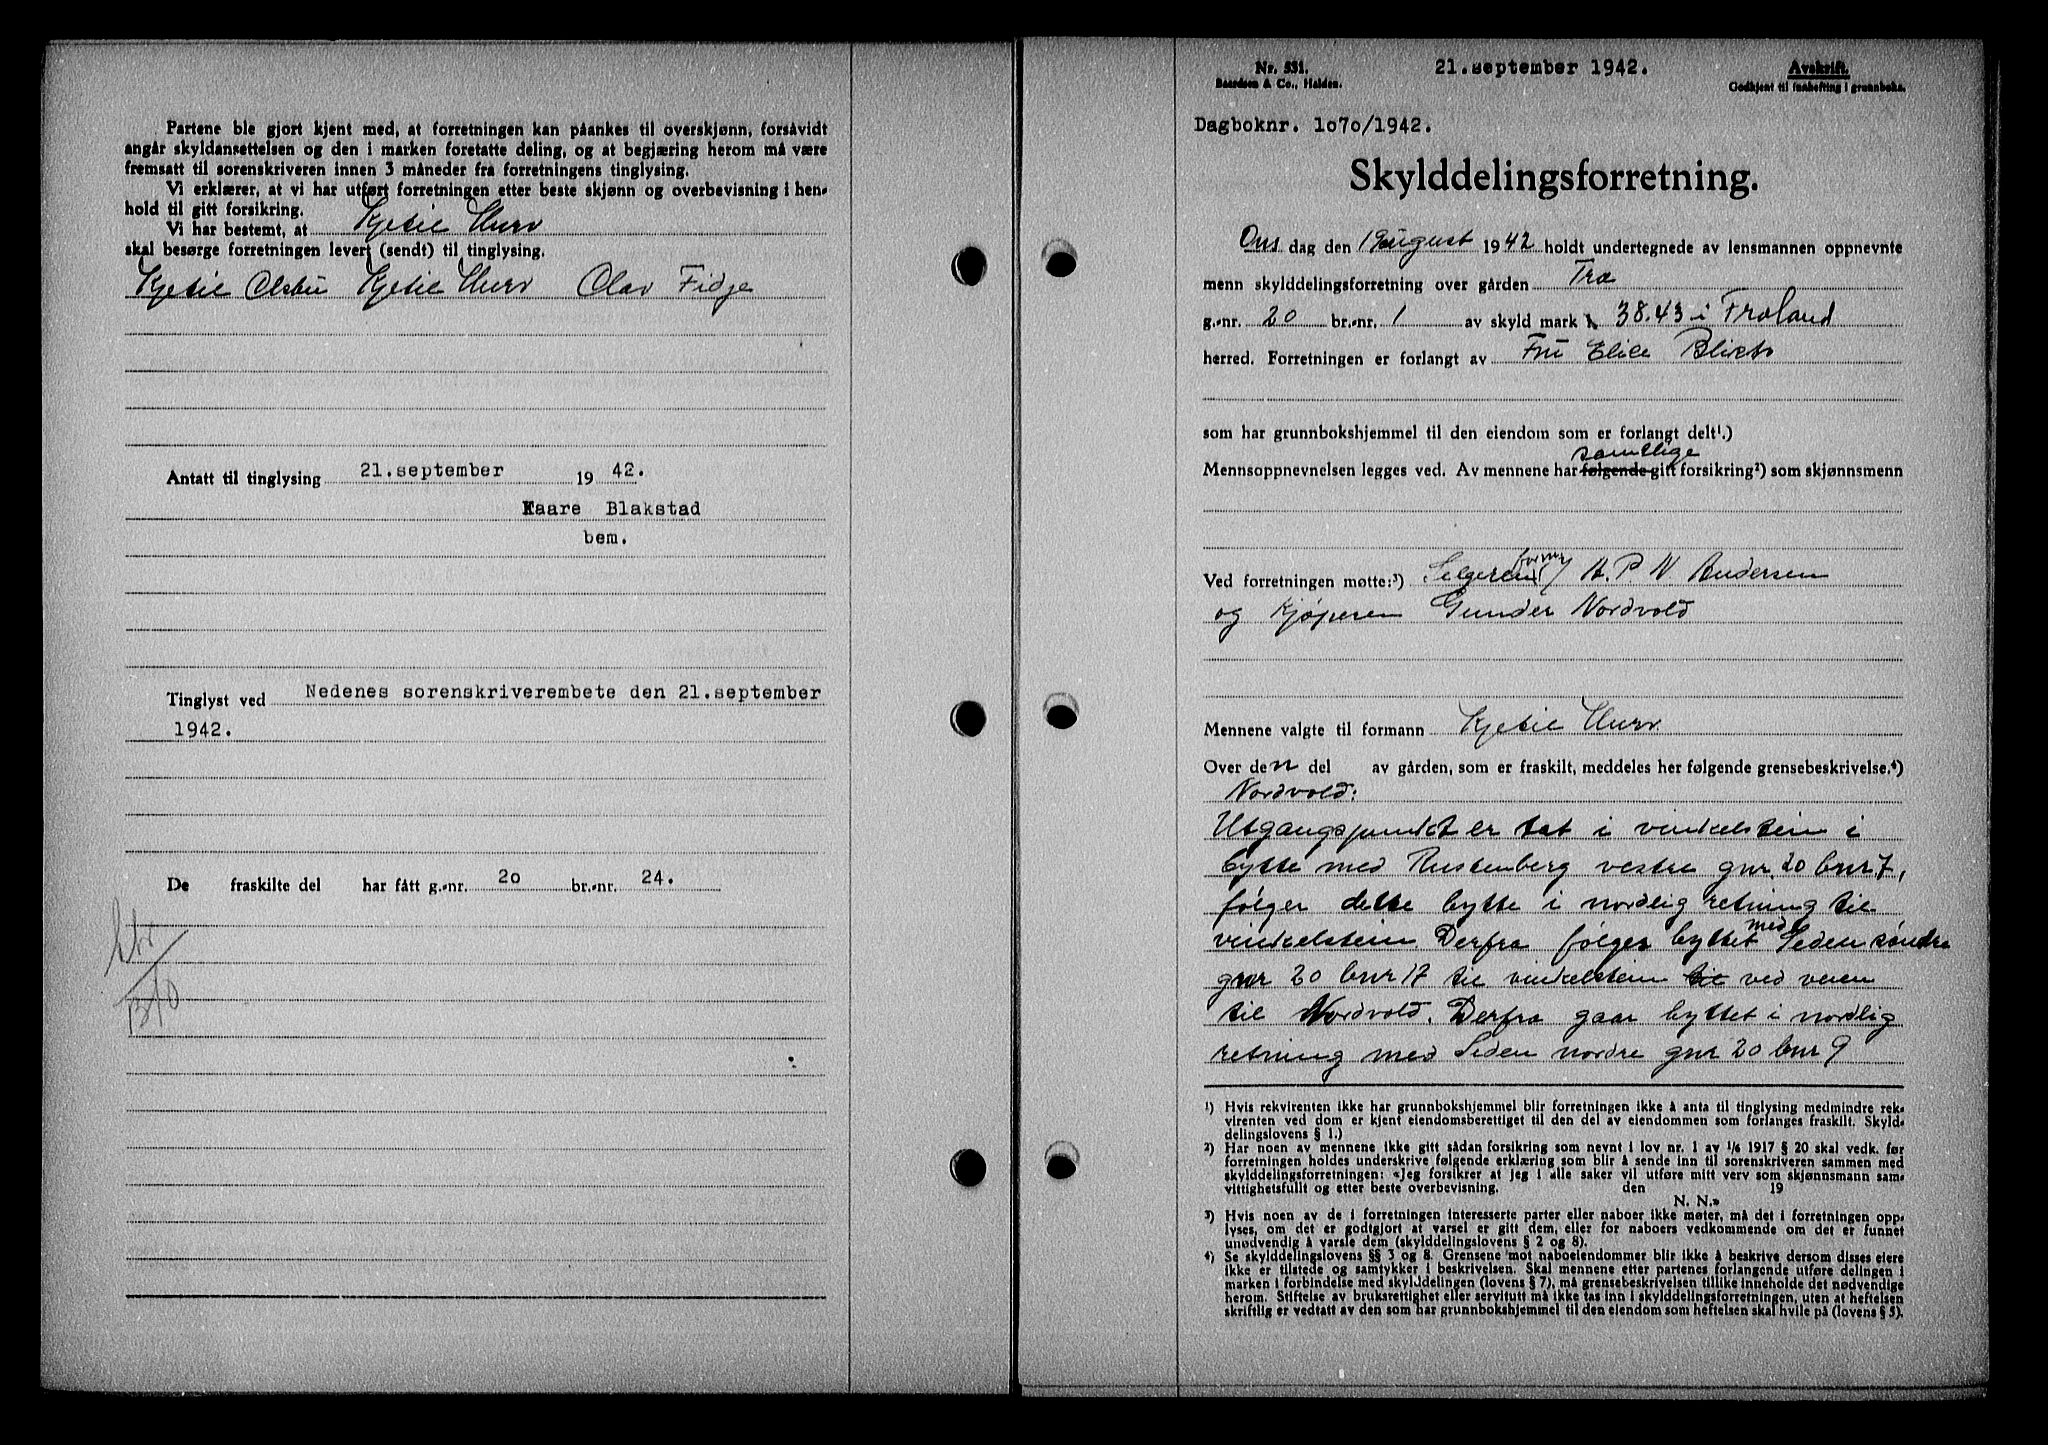 Partene ble gjort kjent med, at forretningen kan påankes til overskjønn, forsåvidt
angår skyldansettelsen og den i marken foretatte deling, og at begjæring herom må være
fremsatt til sorenskriveren innen 3 måneder fra forretningens tinglysing.
Vi erklærer, at vi har utført forretningen etter beste skjønn og overbevisning i hen-
hold til gitt forsikring.
Vi har bestemt, at Kjetil Hurv
skal besørge forretningen levert (sendt) til tinglysing.
Kjetil Olsbu Kjetil Hurv Olav Fidje
Antatt til tinglysing 21.september 19 42.
Kaare Blakstad
bem.
Tinglyst ved Nedenes sorenskriverembete den 21.september
1942.
De fraskilte del har fått g.-nr. 20 br.-nr. 24.
Nr. 531.
Baardsen & Co., Halden.
21.september 1942.
Avskrift.
Godkjent til innhefting i grunnboka.
Dagboknr. 1070/1942.
Skylddelingsforretning.
Ons dag den 19 august 1942 holdt undertegnede av lensmannen oppnevnte
menn skylddelingsforretning over gården Tra
g.-nr. 20 br.-nr. 1 av skyld mark 38.43 i Froland
herred. Forretningen er forlangt av Fru Elise Blix
som har grunnbokshjemmel til den eiendom som er forlangt delt¹.)
samtlige
Mennsoppnevnelsen legges ved. Av mennene har følgende gitt forsikring²) som skjønnsmenn
Ved forretningen møtte:³) Selgeren A. P. N Andersen
og Kjøperen Gunder Nordvold
Mennene valgte til formann Kjetil Hurv.
Over den del av gården, som er fraskilt, meddeles her følgende grensebeskrivelse.⁴)
Nordvold:
Utgangspunkt er tat i vinkelstein i
bytte med Rustenberg vestre gnr. 20 bnr 7,
følger dette bytte i nordlig retning til
vinkelstein. Derfra følger byttet med Seden søndre
gnr 20 bnr 17 til vinkelstein til ved veien
til Nordvold. Derfra gaar byttet i nordlig
retning med Seden nordre gnr 20 bnr 9
¹) Hvis rekvirenten ikke har grunnbokshjemmel blir forretningen ikke å anta til tinglysing medmindre rek-
virenten ved dom er kjent eiendomsberettiget til den del av eiendommen som forlanges fraskilt. Skyld-
delingslovens § 1.)
²) Har noen av mennene ikke gitt sådan forsikring som nevnt i lov nr. 1 av 1/6 1917 § 20 skal vedk. før
forretningen holdes underskrive følgende erklæring som blir å sende inn til sorenskriveren sammen med
skylddelingsforretningen: «Jeg forsikrer at jeg i alle saker vil utføre mitt verv som skjønnsmann sam-
vittighetsfullt og etter beste overbevisning. den 19
N. N.»
³) Hvis noen av de i forretningen interesserte parter eller naboer ikke møter, må det i forretningen opp-
lyses, om det er godtgjort at varsel er gitt dem, eller for naboers vedkommende om det er funnet
unødvendig å varsle dem (skylddelingslovens § 2 og 8).
⁴) Se skylddelingslovens §§ 3 og 8. Grensene mot naboeiendommer blir ikke å beskrive dersom disses eiere
ikke er tilstede og samtykker i beskrivelsen. Skal mennene etter partenes forlangende utføre delingen i
marken i forbindelse med skylddelingen (lovens § 7), må grensebeskrivelsen tillike inneholde det nødvendige
herom. Stiftelse av bruksrettighet eller servitutt må ikke tas inn i skylddelingsforretningen, uten at heftelsen
skriftlig er vedtatt av den som har grunnbokshjemmel til den eiendom som heftelsen skal hvile på (lovens § 5).